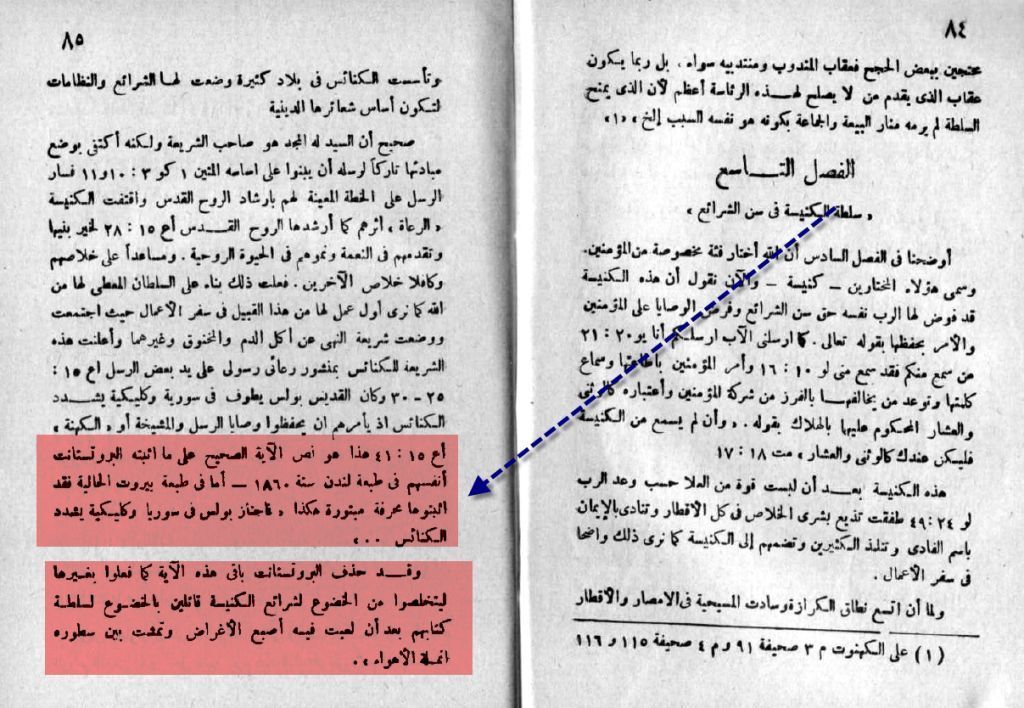 ٨٤
محتجين ببعض الحجج فعقاب المندوب ومنتدبيه سواء. بل ربما يكون
عقاب الذى يقدم من لا يصلح لهذه الرئاسة أعظم لأن الذى يمنح
السلطة لم يرمه منار البيعة والجماعة بكونه هو نفسه السبب إلخ» «١»
الفصل التاسع
«سلطة الكنيسة فى سن الشرائع»
أوضحنا فى الفصل السادس أن الله أختار فئة مخصوصة من المؤمنين.
وسمى هؤلاء المختارين – كنيسة – والآن نقول أن هذه الكنيسة
قد فوض لها الرب نفسه حق سن الشرائع وفرض الوصايا على المؤمنين
والأمر بحفظها بقوله تعالى. كما ارسلنى الآب ارسلكم أنا يو ٢٠ : ٢١
من سمع منكم فقد سمع منى لو ١٠ : ١٦ وأمر المؤمنين بأطاعتها وسماع
كلمتها وتوعد من يخالفها بالفرز من شركة المؤمنين وأعتباره كالوثنى
والعشار المحكوم عليها بالهلاك بقوله. «وأن لم يسمع من الكنيسة
فليسكن عندك كالوثنى والعشار» مت ١٨ : ١٧
هذه الكنيسة بعد أن لبست قوة من العلا حسب وعد الرب
لو ٢٤ : ٤٩ طفقت تذيع بشرى الخلاص فى كل الأقطار وتنادى بالإيمان
باسم الفادى وتتلمذ الكثيرين وتضمهم إلى الكنيسة كما نرى ذلك واضحا
فى سفر الأعمال.
ولما أن اتسع نطاق الكرازة وسادت المسيحية فى الامصار والأقطار
(١) على الكهنوت م ٣ صحيفة ٩١ و م ٤ صحيفة ١١٥ و ١١٦
٨٥
وتأسست الكنائس فى بلاد كثيرة وضعت لها الشرائع والنظامات
لتكون أساس شعائرها الدينية
صحيح أن السيد له المجد هو صاحب الشريعة ولكنه أكتفى بوضع
مبادئها تاركاً لرسله أن يبنوا على اساسه المتين ١ كو ٣ : ١٠ و ١١ فسار
الرسل على الخطة المعينة لهم بارشاد الروح القدس واقتفت الكنيسة
«الرعاة» أثرهم كما أرشدها الروح القدس أع ١٥ : ٢٨ لخير بنيها
وتقدمهم فى النعمة ونموهم فى الحيوة الروحية. ومساعداً على خلاصهم
وكافلا خلاص الآخرين. فعلت ذلك بناء على السلطان المعطى لها من
الله كما نرى أول عمل لها من هذا القبيل فى سفر الأعمال حيث اجتمعت
ووضعت شريعة النهى عن أكل الدم والمخنوق وغيرهما وأعلنت هذه
الشريعة للكنائس بمنشور رعائى رسولى على يد بعض الرسل اع ١٥ :
٢٥ – ٣٠ وكان القديس بولس يطوف فى سورية وكليكية يشدد
الكنائس اذ يأمرهم ان يحفظوا وصايا الرسل والمشيخة أو «الكهنة»
أع ١٥ : ٤١ هذا هو نص الآية الصحيح على ما اثبته البروتستانت
أنفسهم فى طبعة لندن سنة ١٨٦٠ – أما فى طبعة بيروت الحالية فقد
اثبتوها محرفة مبتورة هكذا «فاجتاز بولس فى سوريا وكليكية يشدد
الكنائس ..»
وقد حذف البروتستانت باقى هذه الآية كما فعلوا بغيرها
ليتخلصوا من الخضوع لشرائع الكنيسة قائلين بالخضوع لسلطة
كتابهم بعد أن لعبت فيه أصبع الأغراض وتمشت بين سطوره
انملة الأهواء».